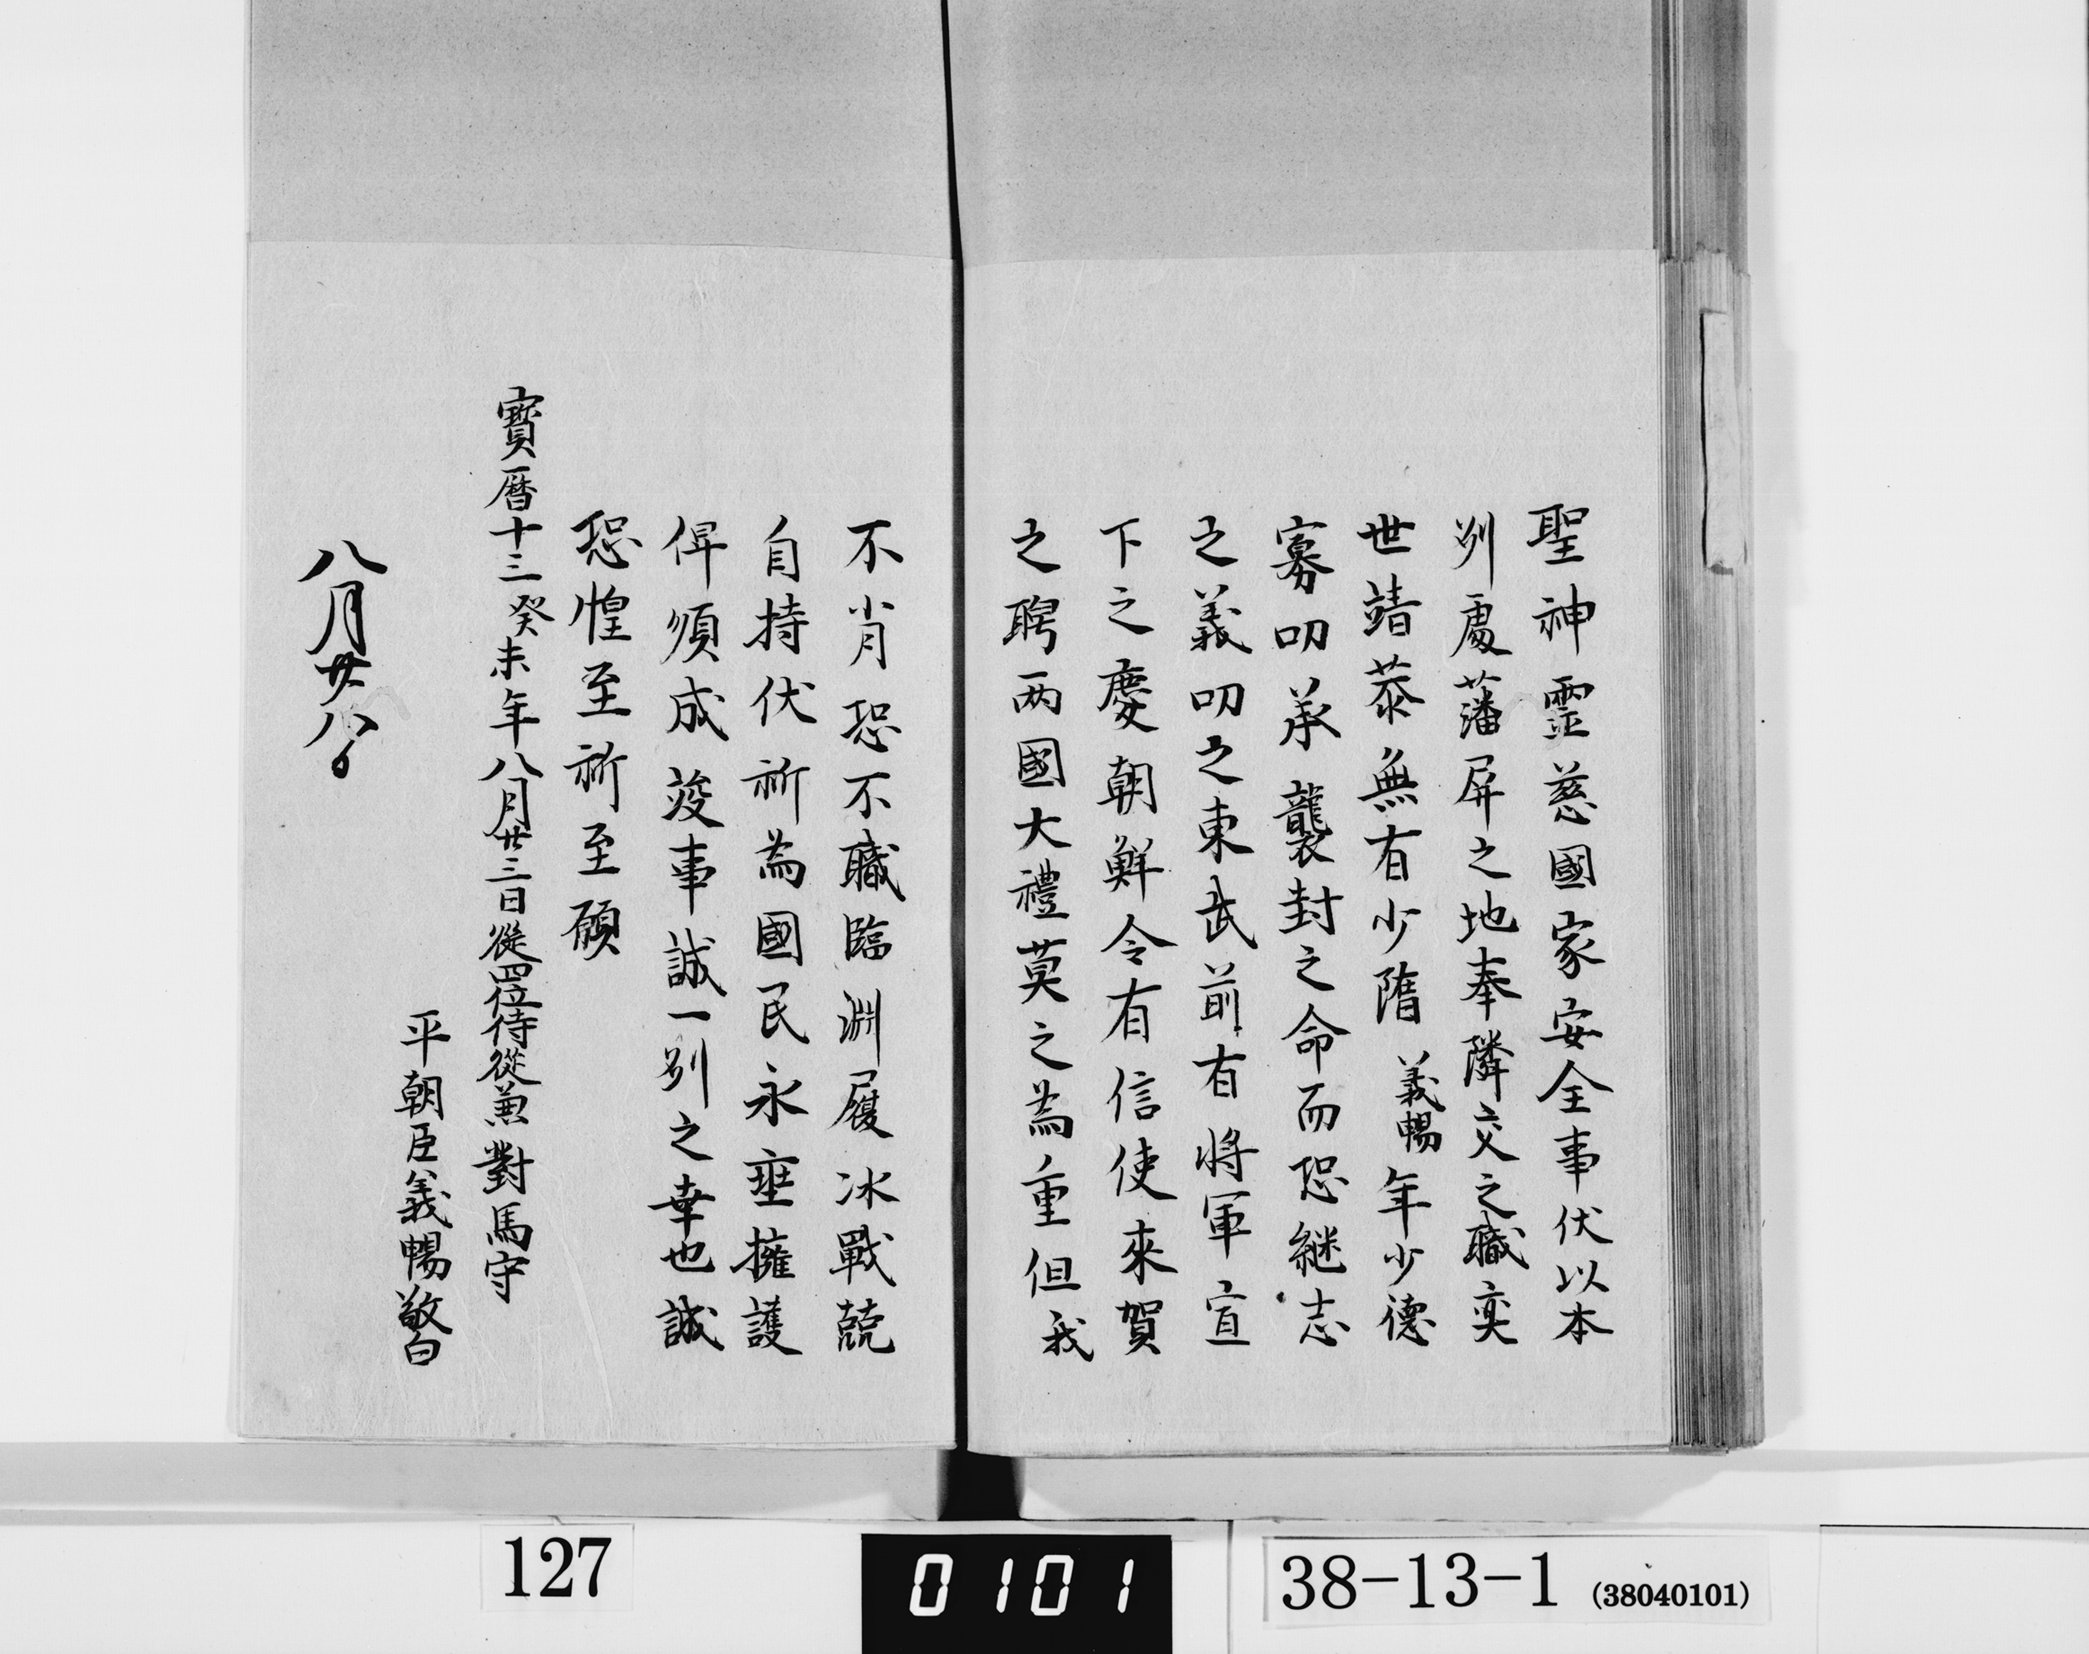 聖神霊慈國家安全事伏以本
州處藩屏之地奉隣交之職奕
世靖恭無有少隋義暢年少德
寡叨承襲封之命而恐継志
之義叨之東武前有将軍宣
下之慶朝鮮令有信使来賀
之聘两國大禮莫之為重但我
不肖恐不職臨淵履冰戰兢
自持伏祈為國民永垂擁護
俾須成竣事誠一州之幸也誠
恐惶至祈至願
寳暦十三癸未年八月廿三日從四位侍從兼對馬守
平朝臣義暢敬白
八月廿八日
127
0101
38-13-1 (38040101)